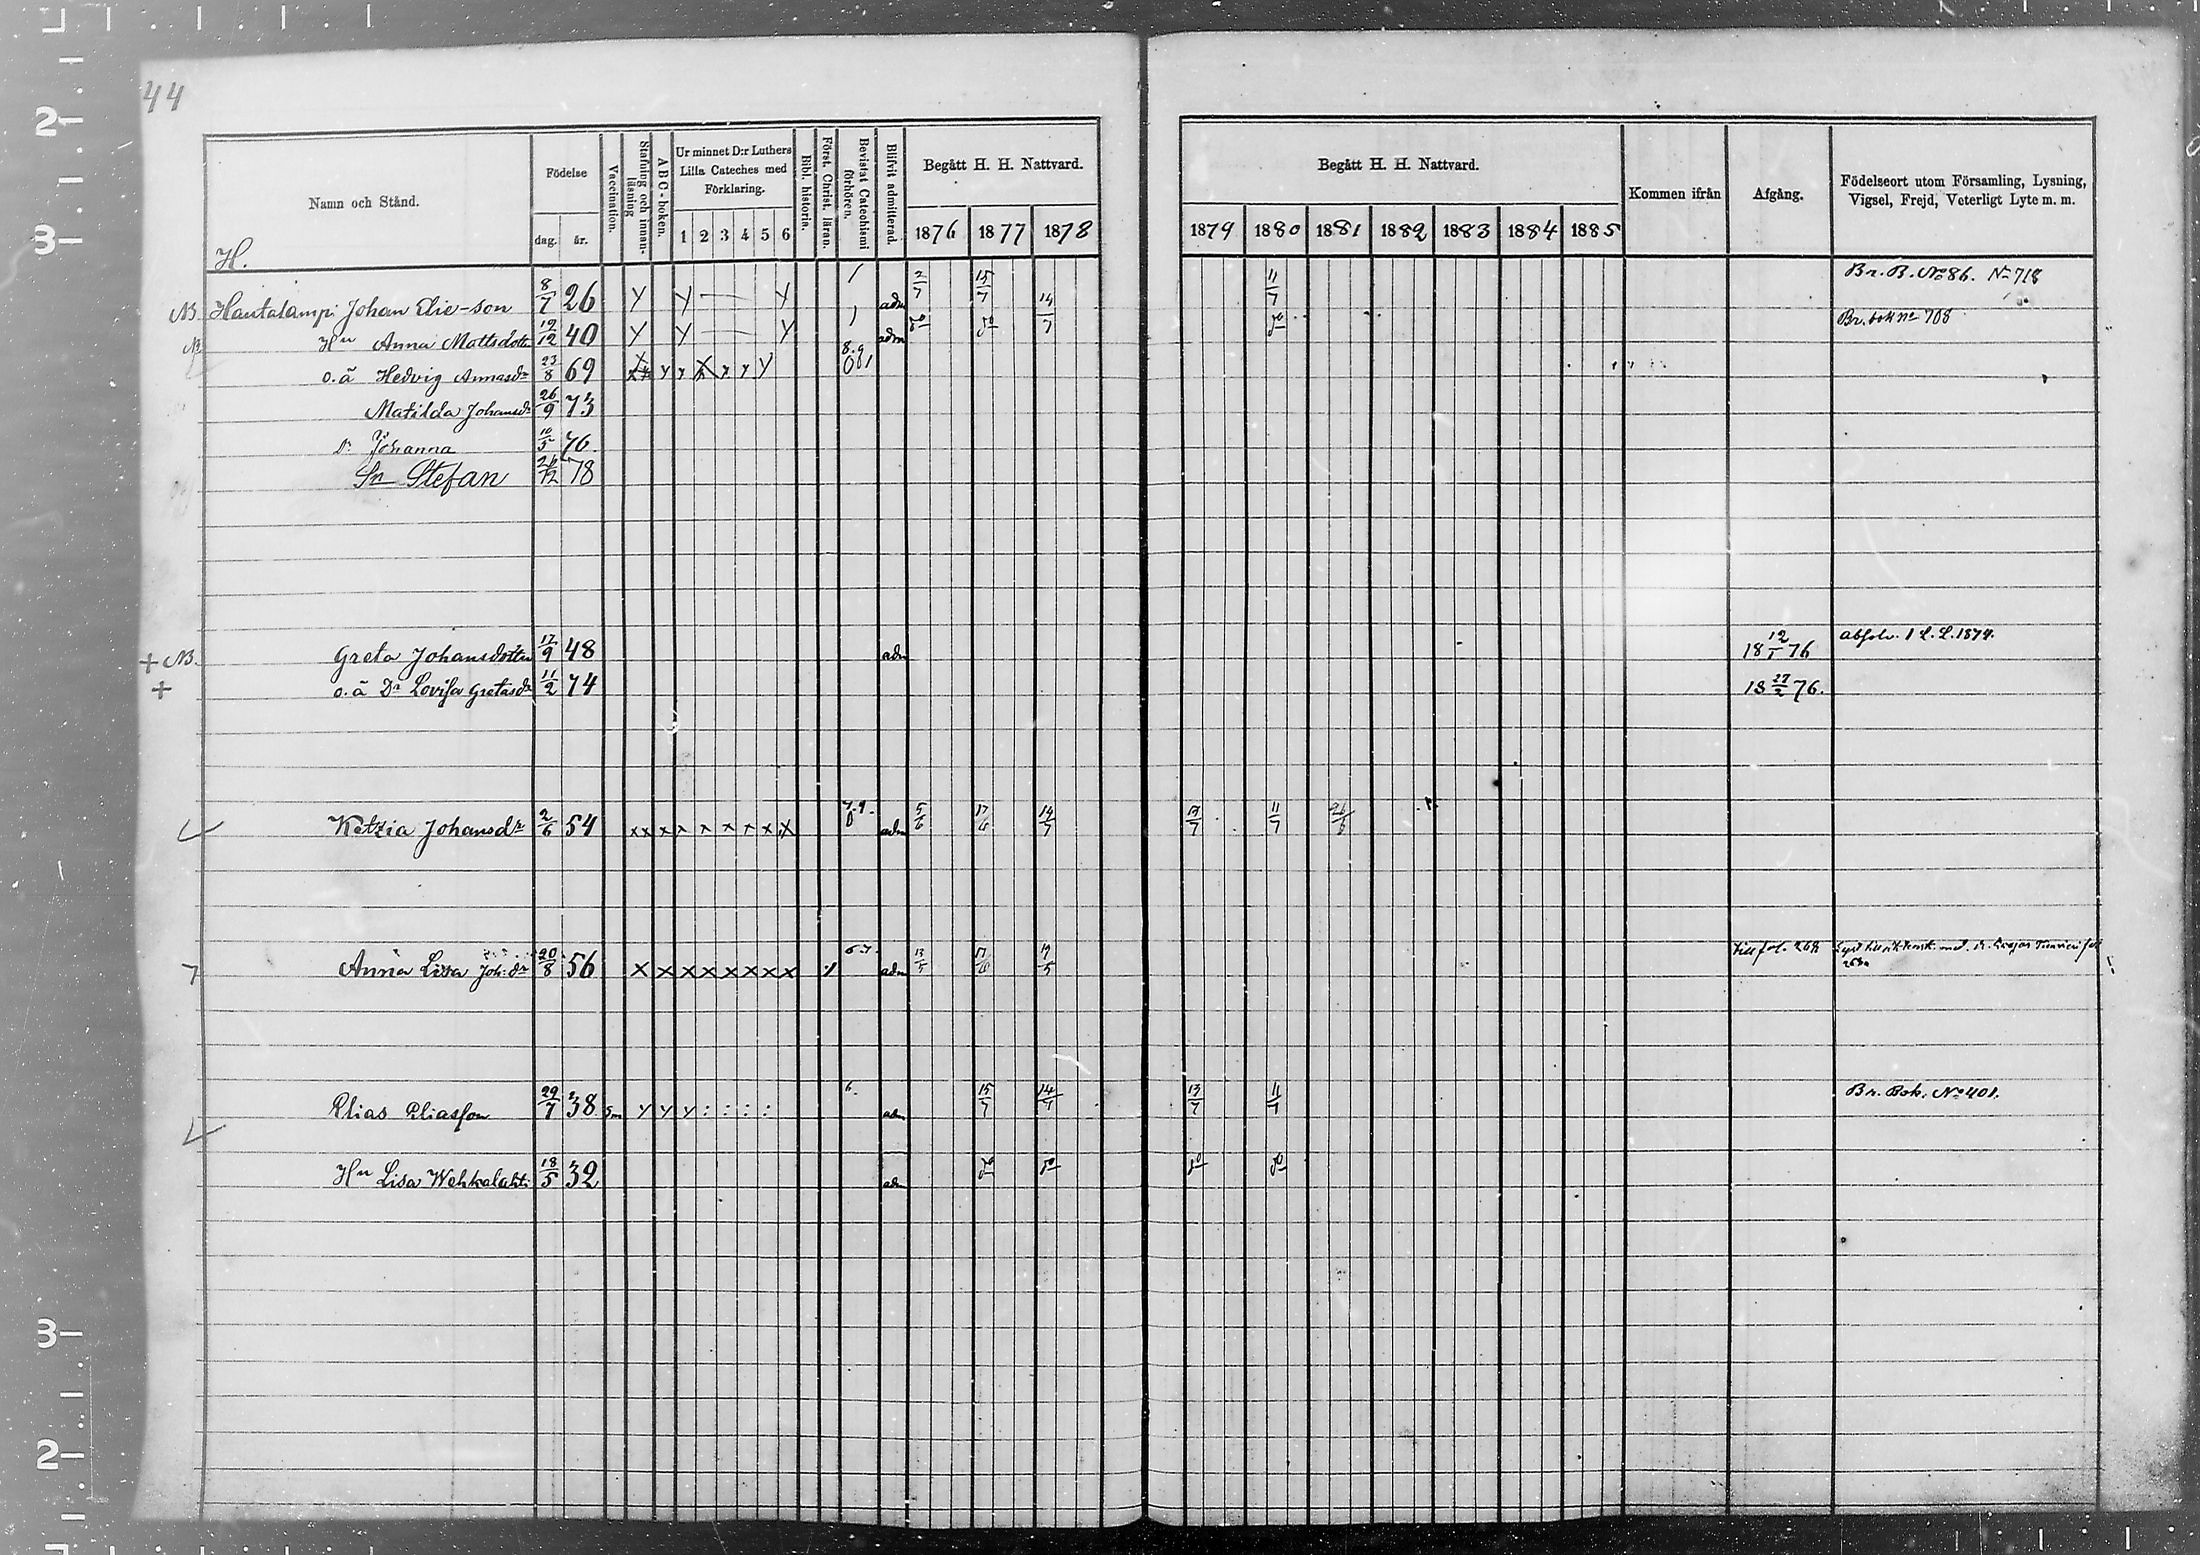 44
Namn och Stånd.
Födelse
dag. år.
Vaccination.
Stafning och innan-läsning
ABC-boken.
Ur minnet D:r Luthers Lilla Cateches med Förklaring.
1 2 3 4 5 6
Bibl. historia.
Förat. Christ. läran.
Bevistat Catechismi förhören.
Blifvit admitterad.
Begått H. H. Nattvard.
1876 1877 1878
Begått H. H. Nattvard.
1879 1880 1881 1882 1883 1884 1885
Kommen ifrån
Afgång.
Födelseort utom Församling, Lysning, Vigsel, Frejd, Veterligt Lyte m. m.
H.
NB. Hautalampi Johan Elie-son 8/7 26 y y — — y / adm 2/7 15/7 14/7 11/7 Br. B. No 86. No 718
Hu Anna Mattsdotter 19/12 40 y y — — y / adm do do do Br. bok no 708
o.ä Hedvig Annasdr 23/8 69 8.9
Matilda Johansdr 26/9 73
Dr Johanna 10/5 76
Sn Stefan 26/12 78
+ NB. Greta Johansdotter 17/9 48 adm 18 12/1 76 absolv. 1 L. L. 1874.
+ o.ä Dr Lovisa Gretasdr 11/2 74 18 27/2 76.
Ketzia Johansdr 2/6 54 x x x x x x x x x 7.9. adm 5/6 17/6 14/7 13/7 11/7 26/6
Anna Lisa Joh:dr 20/8 56 x x x x x x x x 6.7. adm 13/5 17/6 19/5 till fol. 268
Elias Eliasson 29/7 38 y y y : : : : 6. adm 15/7 14/7 13/7 11/7 Br. Bok. No 401.
Hu Lisa Wehkalahti 18/5 32 adm do do do do